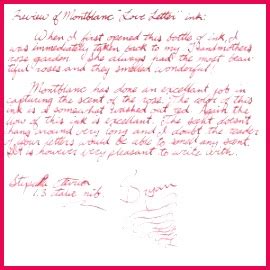 Review of Montblanc "Love Letter" ink:
When I first opened this bottle of ink, I
was immediately taken back to my Grandmothers
rose garden. She always had the most beau-
tiful roses and they smelled wonderful.
Montblanc has done an excellent job in
capturing the scent of the rose. The color of this
ink is a somewhat washed out red. Again the
flow of this ink is excellent. The scent doesn't
hang around very long and I doubt the reader
of your letters would be able to smell any scent.
It is however very pleasant to write with.
Stipula
1.3 nib
Bryan